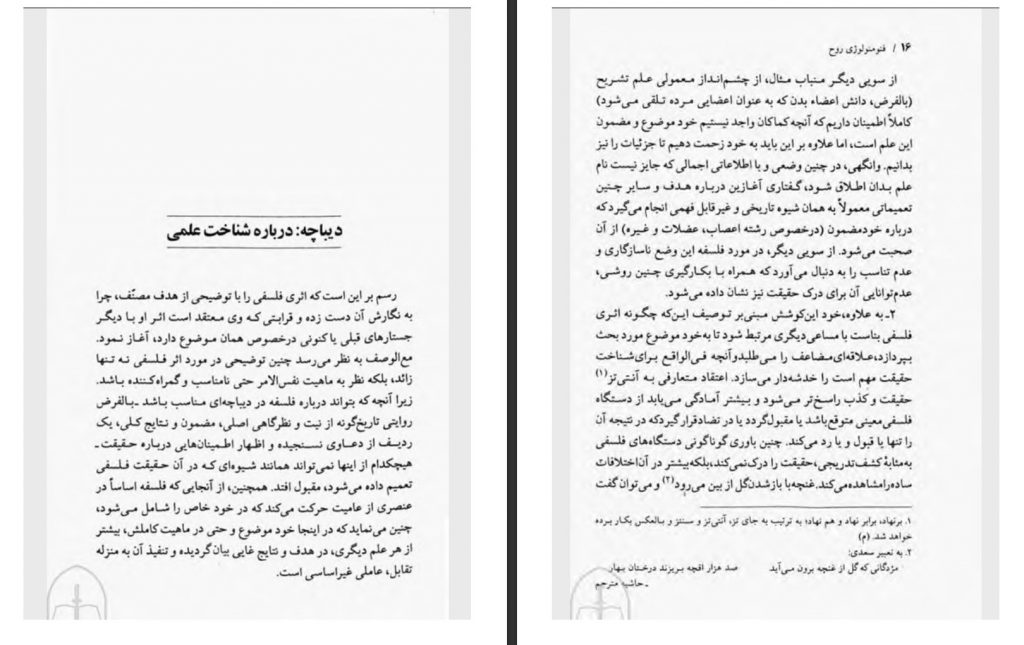 دیباچه: درباره شناخت علمی
رسم بر این است که اثری فلسفی را با توضیحی از هدف مصنّف، چرا
به نگارش آن دست زده و قرابتی که وی معتقد است اثر او با دیگر
جستارهای قبلی یا کنونی درخصوص همان موضوع دارد، آغاز نمود.
مع‌الوصف به نظر می‌رسد چنین توضیحی در مورد اثر فلسفی نه تنها
زائد، بلکه نظر به ماهیت نفس‌الامر حتی نامناسب و گمراه‌کننده باشد.
زیرا آنچه که بتواند درباره فلسفه در دیباچه‌ای مناسب باشد ـ بالفرض
روایتی تاریخ‌گونه از نیت و نظرگاهی اصلی، مضمون و نتایج کلی، یک
ردیف از دعاوی نسنجیده و اظهار اطمینان‌هایی درباره حقیقت ـ
هیچکدام از اینها نمی‌تواند همانند شیوه‌ای که در آن حقیقت فلسفی
تعمیم داده می‌شود، مقبول افتد. همچنین، از آنجایی که فلسفه اساساً در
عنصری از عامیت حرکت می‌کند که در خود خاص را شامل می‌شود،
چنین می‌نماید که در اینجا خود موضوع و حتی در ماهیت کاملش، بیشتر
از هر علم دیگری، در هدف و نتایج غایی بیان گردیده و تنفیذ آن به منزله
تقابل، عاملی غیراساسی است.
۱۶ / فنومنولوژی روح
از سویی دیگر منباب مثال، از چشم‌انداز معمولی علم تشریح
(بالفرض، دانش اعضاء بدن که به عنوان اعضایی مرده تلقی می‌شود)
کاملاً اطمینان داریم که آنچه کماکان واجد نیستیم خود موضوع و مضمون
این علم است، اما علاوه بر این باید به خود زحمت دهیم تا جزئیات را نیز
بدانیم. وانگهی، در چنین وضعی و با اطلاعاتی اجمالی که جایز نیست نام
علم بدان اطلاق شود، گفتاری آغازین درباره هدف و سایر چنین
تعمیماتی معمولاً به همان شیوه تاریخی و غیرقابل فهمی انجام می‌گیرد که
درباره خودمضمون (درخصوص رشته اعصاب، عضلات و غیره) از آن
صحبت می‌شود. از سویی دیگر، در مورد فلسفه این وضع ناسازگاری و
عدم تناسب را به دنبال می‌آورد که همراه با بکارگیری چنین روشی،
عدم‌توانایی آن برای درک حقیقت نیز نشان داده می‌شود.
۲ـ به علاوه، خود این‌کوشش مبنی‌بر توصیف این‌که چگونه اثری
فلسفی بناست با مساعی دیگری مرتبط شود تا به‌خود موضوع مورد بحث
بپردازد، علاقه‌ای‌مضاعف را می‌طلبد و آنچه فی‌الواقع برای‌شناخت
حقیقت مهم است را خدشه‌دار می‌سازد. اعتقاد متعارفی به آنتی‌تز(۱)
حقیقت و کذب راسخ‌تر می‌شود و بیشتر آمادگی می‌یابد از دستگاه
فلسفی معینی متوقع‌باشد یا مقبول‌گردد یا در تضادقرارگیرد که در نتیجه آن
را تنها یا قبول و یا رد می‌کند. چنین باوری گوناگونی دستگاه‌های فلسفی
به‌مثابهٔ کشف‌تدریجی، حقیقت را درک‌نمی‌کند، بلکه بیشتر در آن‌اختلافات
ساده‌را مشاهده‌می‌کند. غنچه‌با باز‌شدن‌گل از بین می‌رود(۲) و می‌توان گفت
۱. برنهاد، برابر نهاد و هم نهاد؛ به ترتیب به جای تز، آنتی‌تز و سنتز و بالعکس بکار برده
خواهد شد. (م)
۲. به تعبیر سعدی:
مژدگانی که گل از غنچه برون می‌آید صد هزار اقچه بریزند درختان بهار
ـ حاشیه مترجم